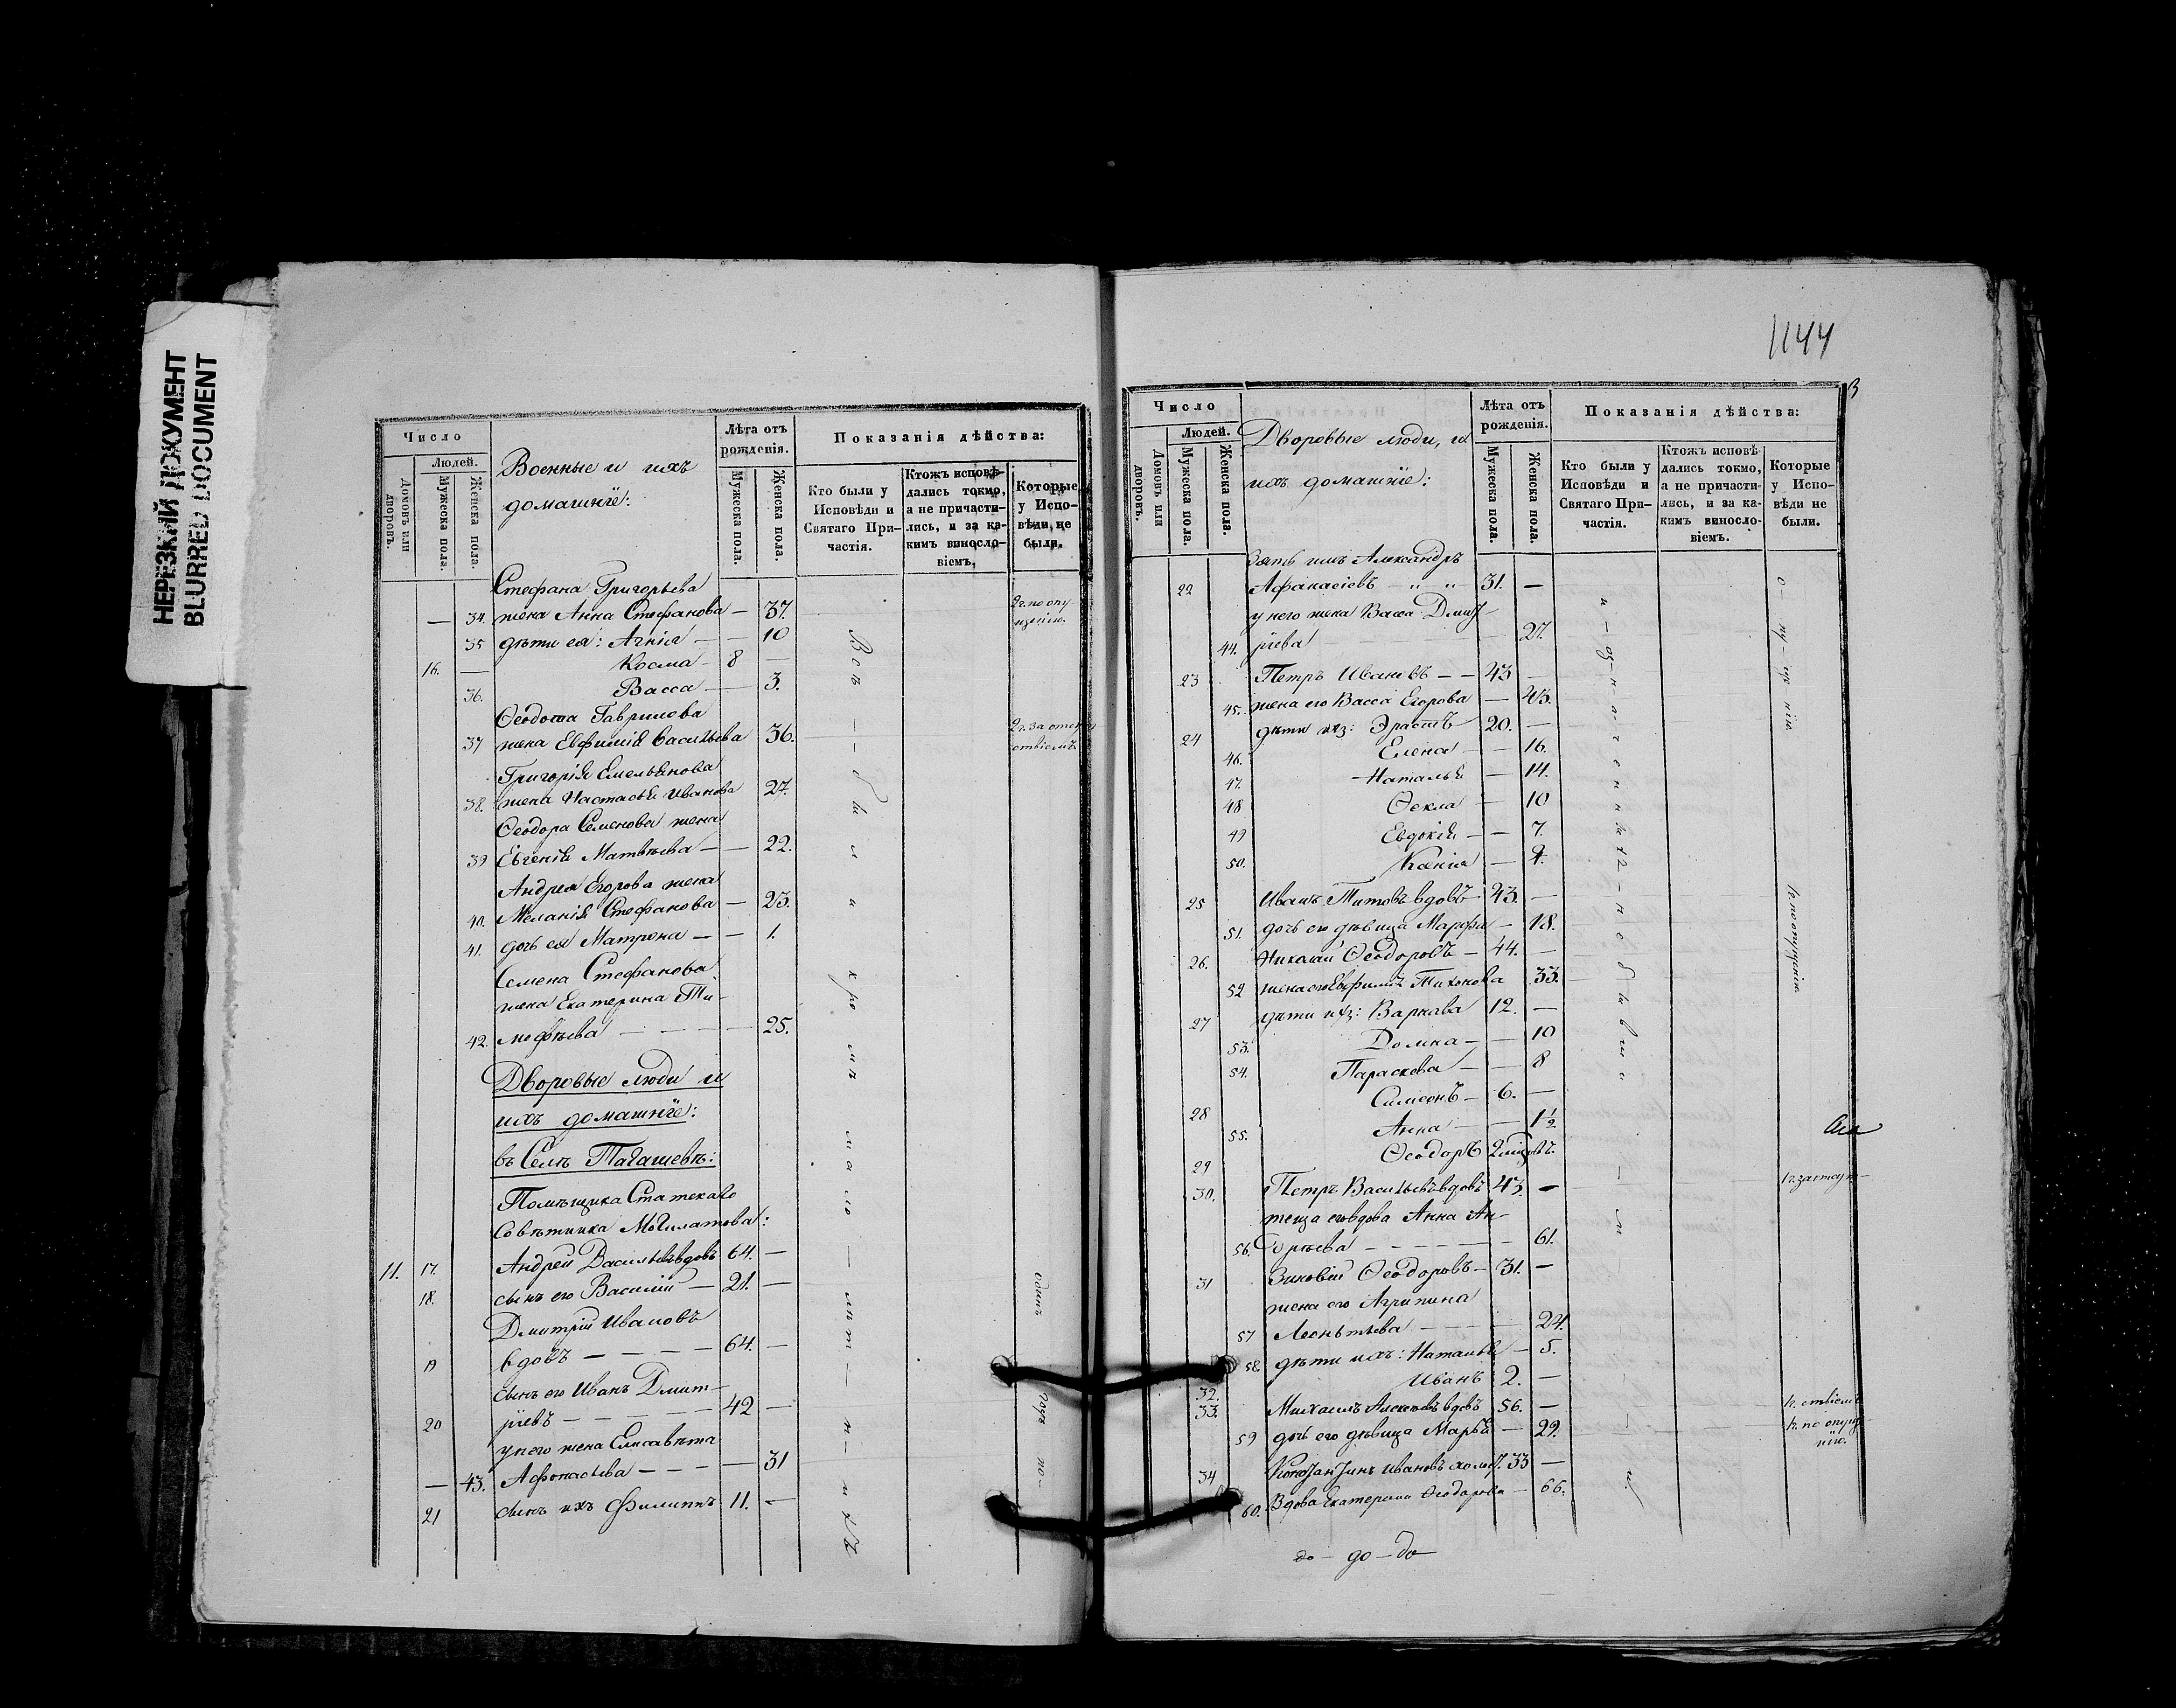 НЕРЕЗКИЙ ДОКУМЕНТ
BLURRED DOCUMENT
Число
Людей.
Домовъ или дворовъ.
Мужеска пола.
Женска пола.
Военные и ихъ
домашніе:
Лѣта отъ рожденія.
Мужеска пола.
Женска пола.
Показанія дѣйства:
Кто были у Исповѣди и Святаго При-частія.
Ктожъ исповѣ-дались токмо, а не причасти-лись, и за ка-кимъ винос­ло-віемъ.
Которые у Испо-вѣди не были.
Стефана Григорьева
— 34. жена Анна Стефанова — 37. 2. по опу
щенію.
35 дѣти ея: Агнія — — 10
16. — Косма — 8 —
36. Васса — 3.
Ѳеодота Гаврилова
37 жена Евфимія Васильева 36. 2. за отсут
ствіемъ
Григорія Емельянова
38. жена Настасья Иванова 27.
Ѳеодора Семенова жена
39 Евгенія Матвѣева — — 22.
Андрея Егорова жена
40. Меланія Стефанова — 23.
41. дочь ея Матрона — — 1.
Семена Стефанова
жена Екатерина Ти-
42. мофѣева — — — — 25.
Дворовые люди и
ихъ домашніе:
въ Селѣ Тагашевѣ:
Помѣщика Статскаго
Совѣтника
11. 17. Андрей Васильевъ вдовъ 64. —
18. сынъ его Василій — 21. —
Дмитрій Ивановъ
19 вдовъ — — — — 64. —
сынъ его Иванъ Дмит-
20 ріевъ — — — — — 42 —
у него жена Елисавета
— 43. Афонасьева — — — — 31
21 сынъ ихъ Филиппъ 11. —
Всѣ — были кромѣ мало — лѣт — н — ихъ
одинъ годъ по —
1144
3
Число
Людей.
Домовъ или дворовъ.
Мужеска пола.
Женска пола.
Дворовые люди, и
ихъ домашніе:
Лѣта отъ рожденія.
Мужеска пола.
Женска пола.
Показанія дѣйства:
Кто были у Исповѣди и Святаго При-частія.
Ктожъ исповѣ-дались токмо, а не причасти-лись, и за ка-кимъ винос­ло-віемъ.
Которые у Испо-вѣди не были.
Зять ихъ Александръ
22 Афанасіевъ — " " 31. —
у него жена Васса Дмит-
44. ріева — 27.
23 Петръ Ивановъ — — 43 —
45. жена его Васса Егорова — 43.
24 дѣти ихъ: Эрастъ 20. —
46. Елена — — 16.
47. Наталья — 14.
48 Ѳекла — 10
49 Евдокія — — 7.
50. Ксенія —
25 Иванъ Титовъ вдовъ 43. —
51. дочь его дѣвица Марфа — 18.
26. Николай Ѳеодоровъ — 44. —
52 жена его Евфимія Тихонова 33.
27 дѣти ихъ: Варнава 12. —
53. Домна — — 10
54. Параскева — — 8
28 Симеонъ — 6. —
55. Анна — — 1½
29 Ѳеодоръ
30. Петръ Васильевъ вдовъ 43. —
теща его вдова Анна Ан-
56. дреева — — — — — 61.
31 Зиновій Ѳеодоровъ — 31. —
жена его Агрипина
57 Леонтьева — — — 24.
58. дѣти ихъ: Наталья — 5.
32. Иванъ 2. —
33. Михаилъ Алексѣевъ вдовъ 56. —
59 дочь его дѣвица Марья — 29.
34 Константинъ Ивановъ холост. 33 —
60. Вдова Екатерина Ѳеодорова — 66.
о — пу — ще ніи
1. по опущенію
1. за отсут —
1. отствіемъ
1. по опуще
нію.
до — до — до